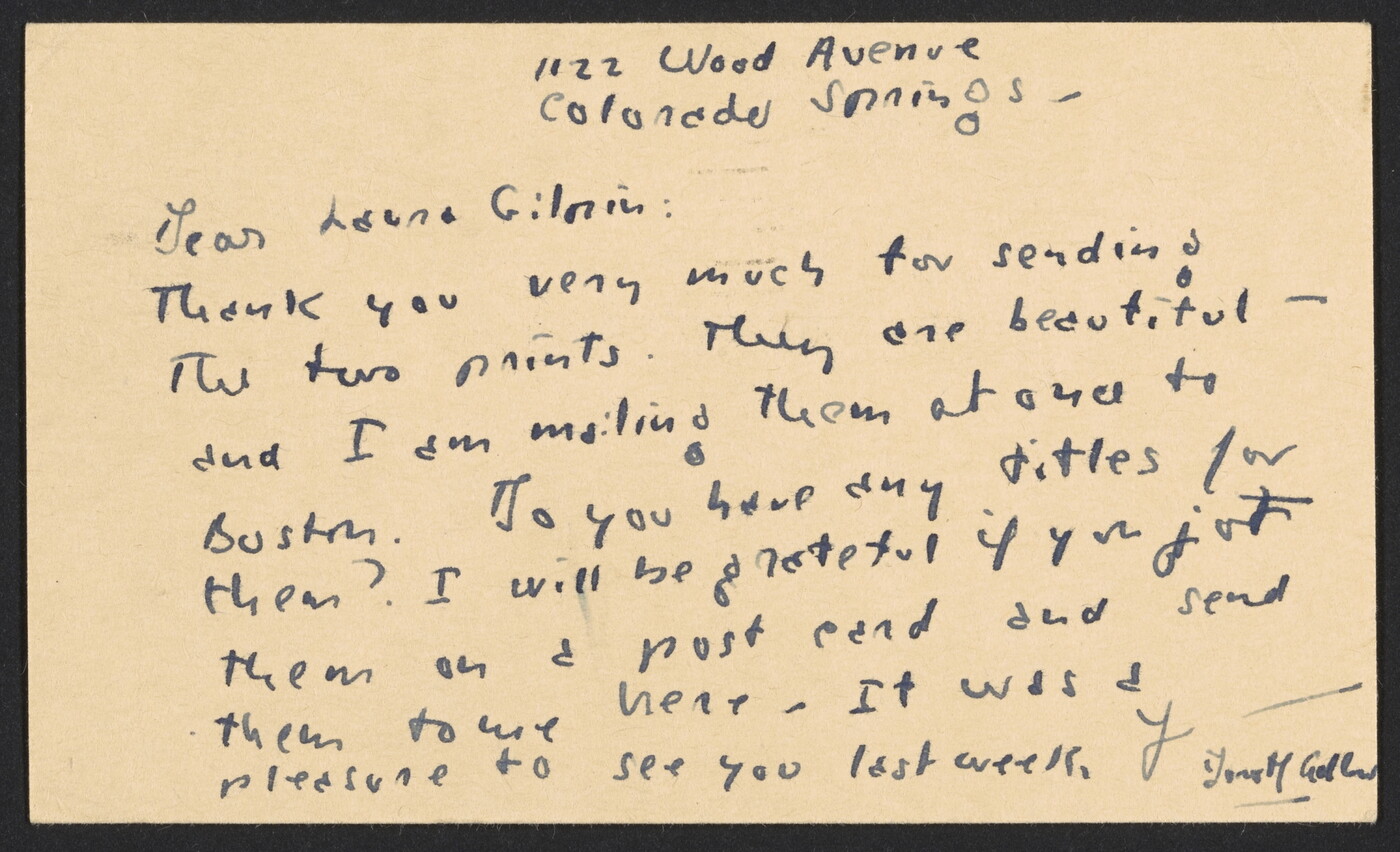 1122 Wood Avenue
Colorado Springs –
Dear Laura Gilpin:
Thank you very much for sending
The two prints. They are beautiful –
and I am mailing them at once to
Boston. Do you have any titles for
them? I will be grateful if you jot
them on a post card and send
them to me here – It was a
pleasure to see you last week.